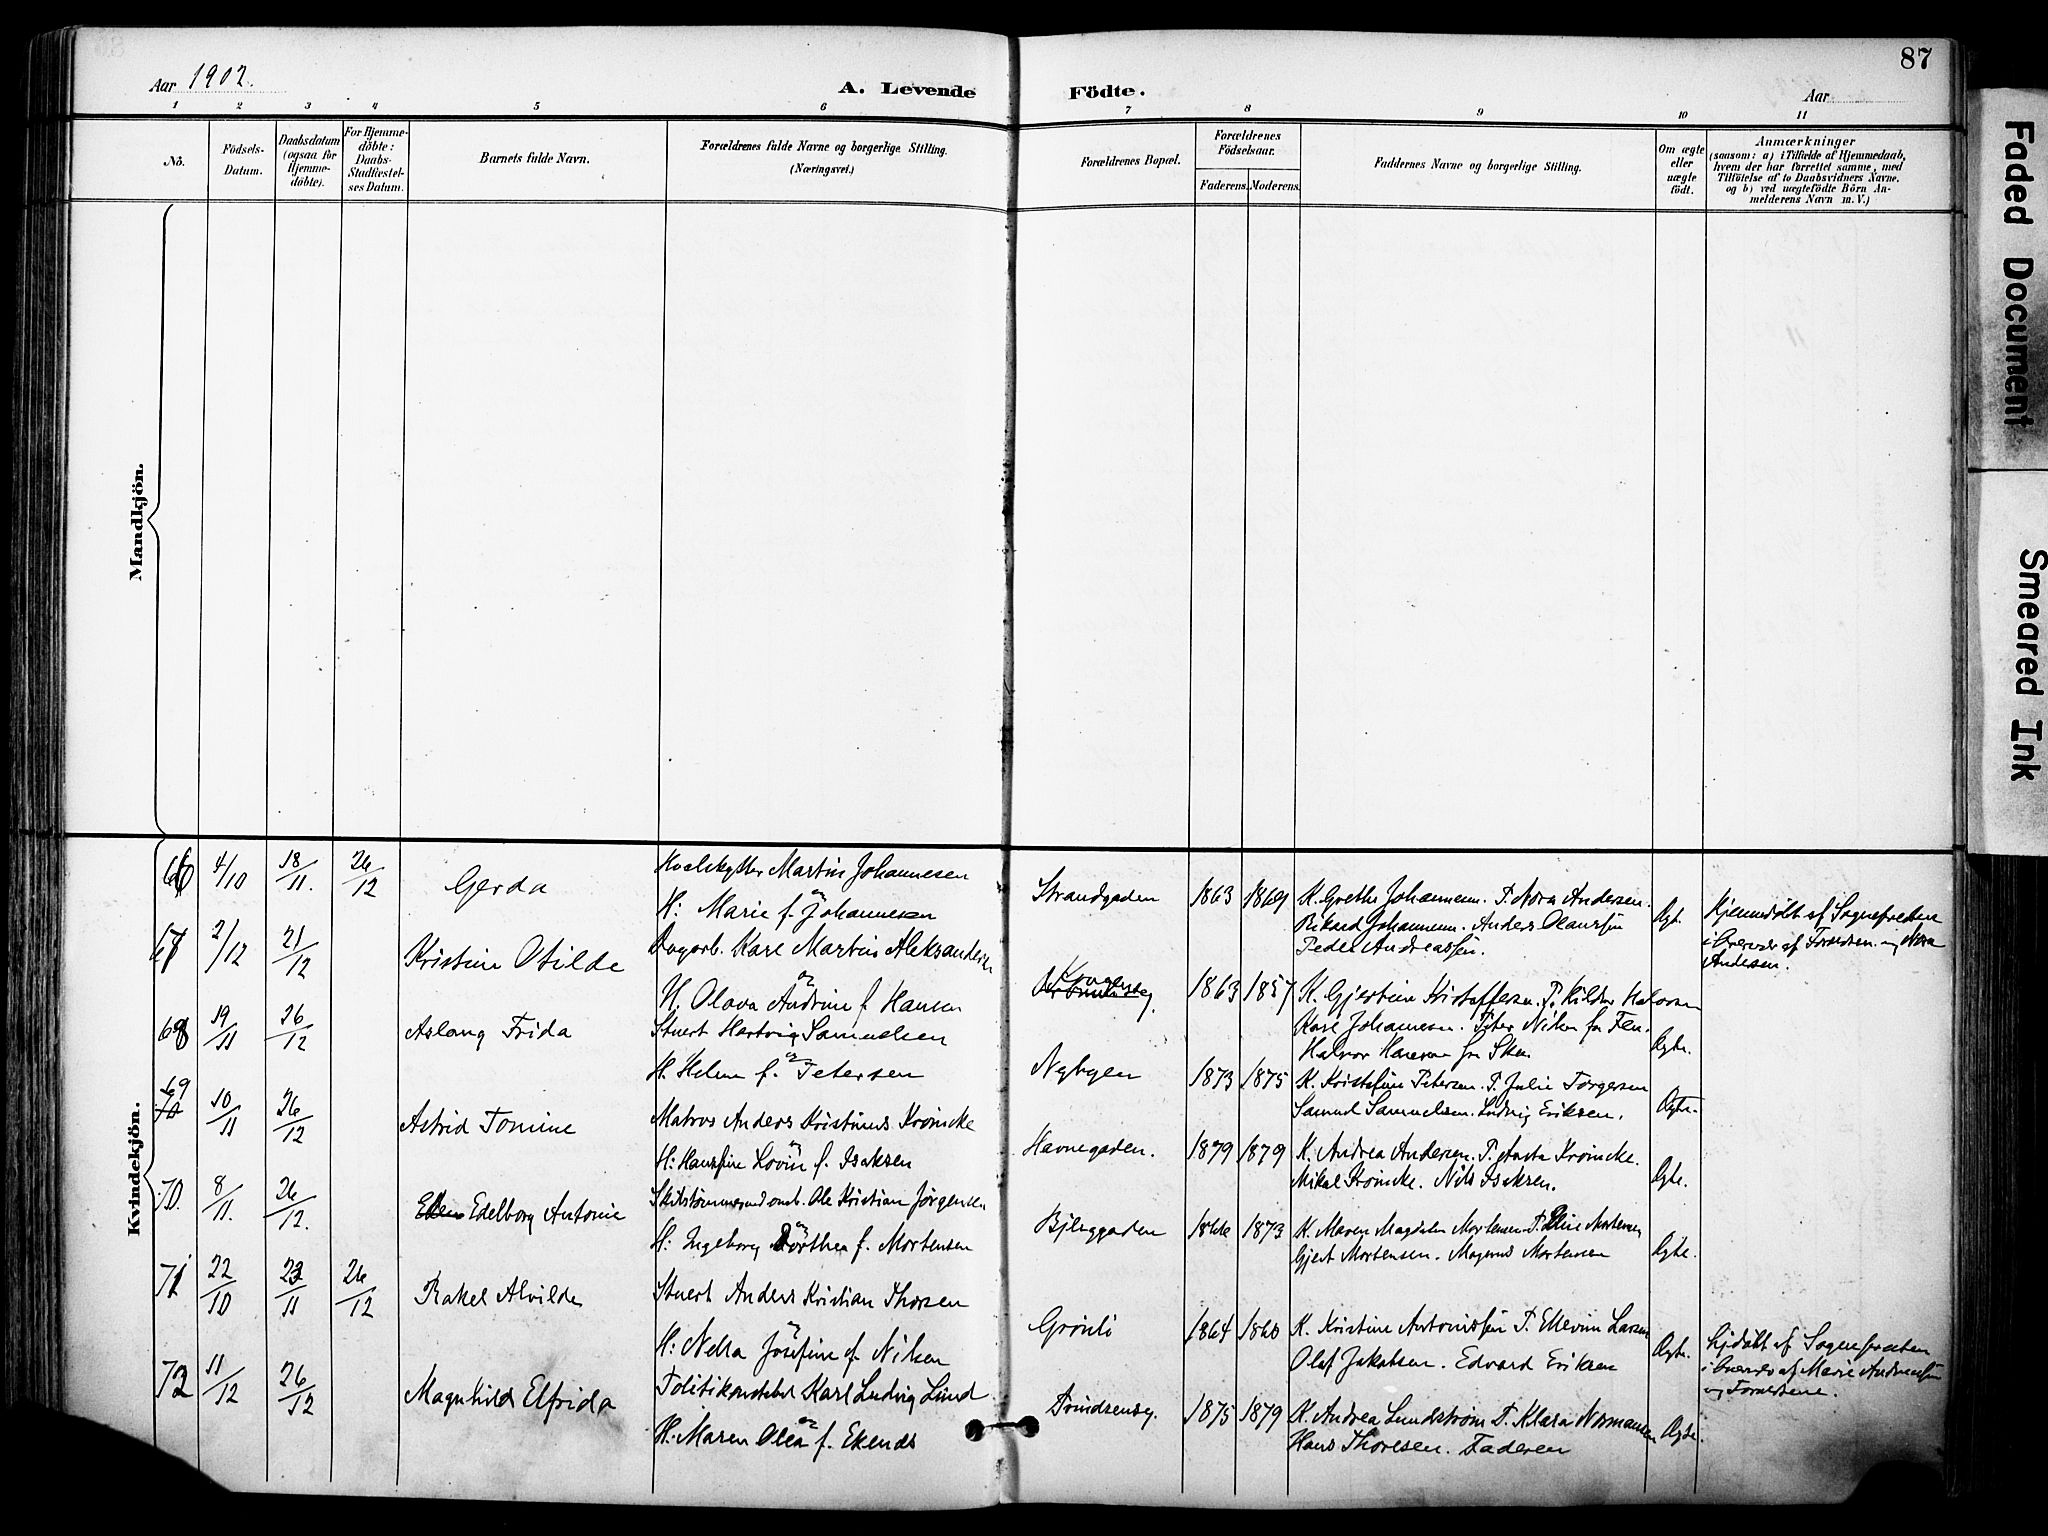 87
Aar 1902.
A. Levende Födte.
Aar
1 2 3 4 5 6 7 8 9 10 11
Nô.
Födsels-
Datum.
Daabsdatum
(ogsaa for
Hjemme-
döbte).
For Hjemme-
döbte:
Daabs-
Stadfæstel-
ses Datum.
Barnets fulde Navn.
Forældrenes fulde Navne og borgerlige Stilling.
(Næringsvei.)
Forældrenes Bopæl.
Forældrenes
Födselsaar.
Faderens. Moderens.
Faddernes Navne og borgerlige Stilling.
Om ægte
eller
uægte
födt.
Anmærkninger
(saasom: a) i Tilfælde af Hjemmedaab,
hvem der har forrettet samme, med
Tilföielse af to Daabsvidners Navne.
og b) ved uægtefödte Börn An-
melderens Navn m. V.)
Mandkjön.
Kvindekjön.
66 4/10 18/11. 26/12 Gerda
Hvalskytter Martin Johannesen
H: Marie f. Johannesen
Strandgaden 1863 1869
K. Grethe Johannesen. P. Nora Andersen.
Rikard Johannesen. Anders Olaussen
Peder Andreassen.
Ægte.
Hjemmedøbt af Sognepresten
i Overvær af Forældrene og Nora
Andersen.
67 2/12 21/12 Kristine Otilde
Dagarb. Karl Martin Aleksandersen
H. Olava Andrine f. Hansen
1863 1857
K. Gjertine Kristoffersen. P. Hilda Halvorsen
Karl Johannesen. Peter Nilsen
Halvor Hansen
Ægte.
68 19/11 26/12 Aslaug Frida
Stuert Hartvig Samuelsen
H. Helene f. Petersen
Nybyen 1873 1875
K. Kristofine Petersen. P. Julie Torgersen
Samuel Samuelsen. Ludvig Eriksen.
Ægte.
69 10/11 26/12 Astrid Tomine
Matros Anders Kristinus Krönicke
H: Hansine Lovise f. Isaksen
Havnegaden. 1879 1879
K. Andrea Andersen. P. Asta Krönicke.
Mikal Krönicke. Nils Isaksen.
Ægte.
70. 8/11. 26/12. Edelborg Antonie
Skibstømmermand Ole Kristian Jørgensen
H: Ingeborg Dorthea f. Mortensen
Bjerggaden 1866 1873
K. Maren Magdalene Mortensen P. Mortensen
Gjert Mortensen. Magnus Mortensen
Ægte.
71 22/10 23/11 26/12 Rakel Alvilde
Stuert Anders Kristian Thorsen
H: Nella Josefine f. Nilsen
Grönli 1864 1860
K. Kristine Antonissen P. Ellevine Larsen
Olaf Jakobsen. Edvard Eriksen
Ægte.
Hjdøbt af Sognepresten
i Overvær af Marie Andreassen
og Forældrene.
72 11/12 26/12 Magnhild Elfrida
Politikonstabel Karl Ludvig Lund
H: Maren Olea f. Ekends
1875 1879
K. Andrea Lundström P. Klara Normansen
Hans Thoresen. Faderen
Ægte.
Faded Document
Smeared Ink